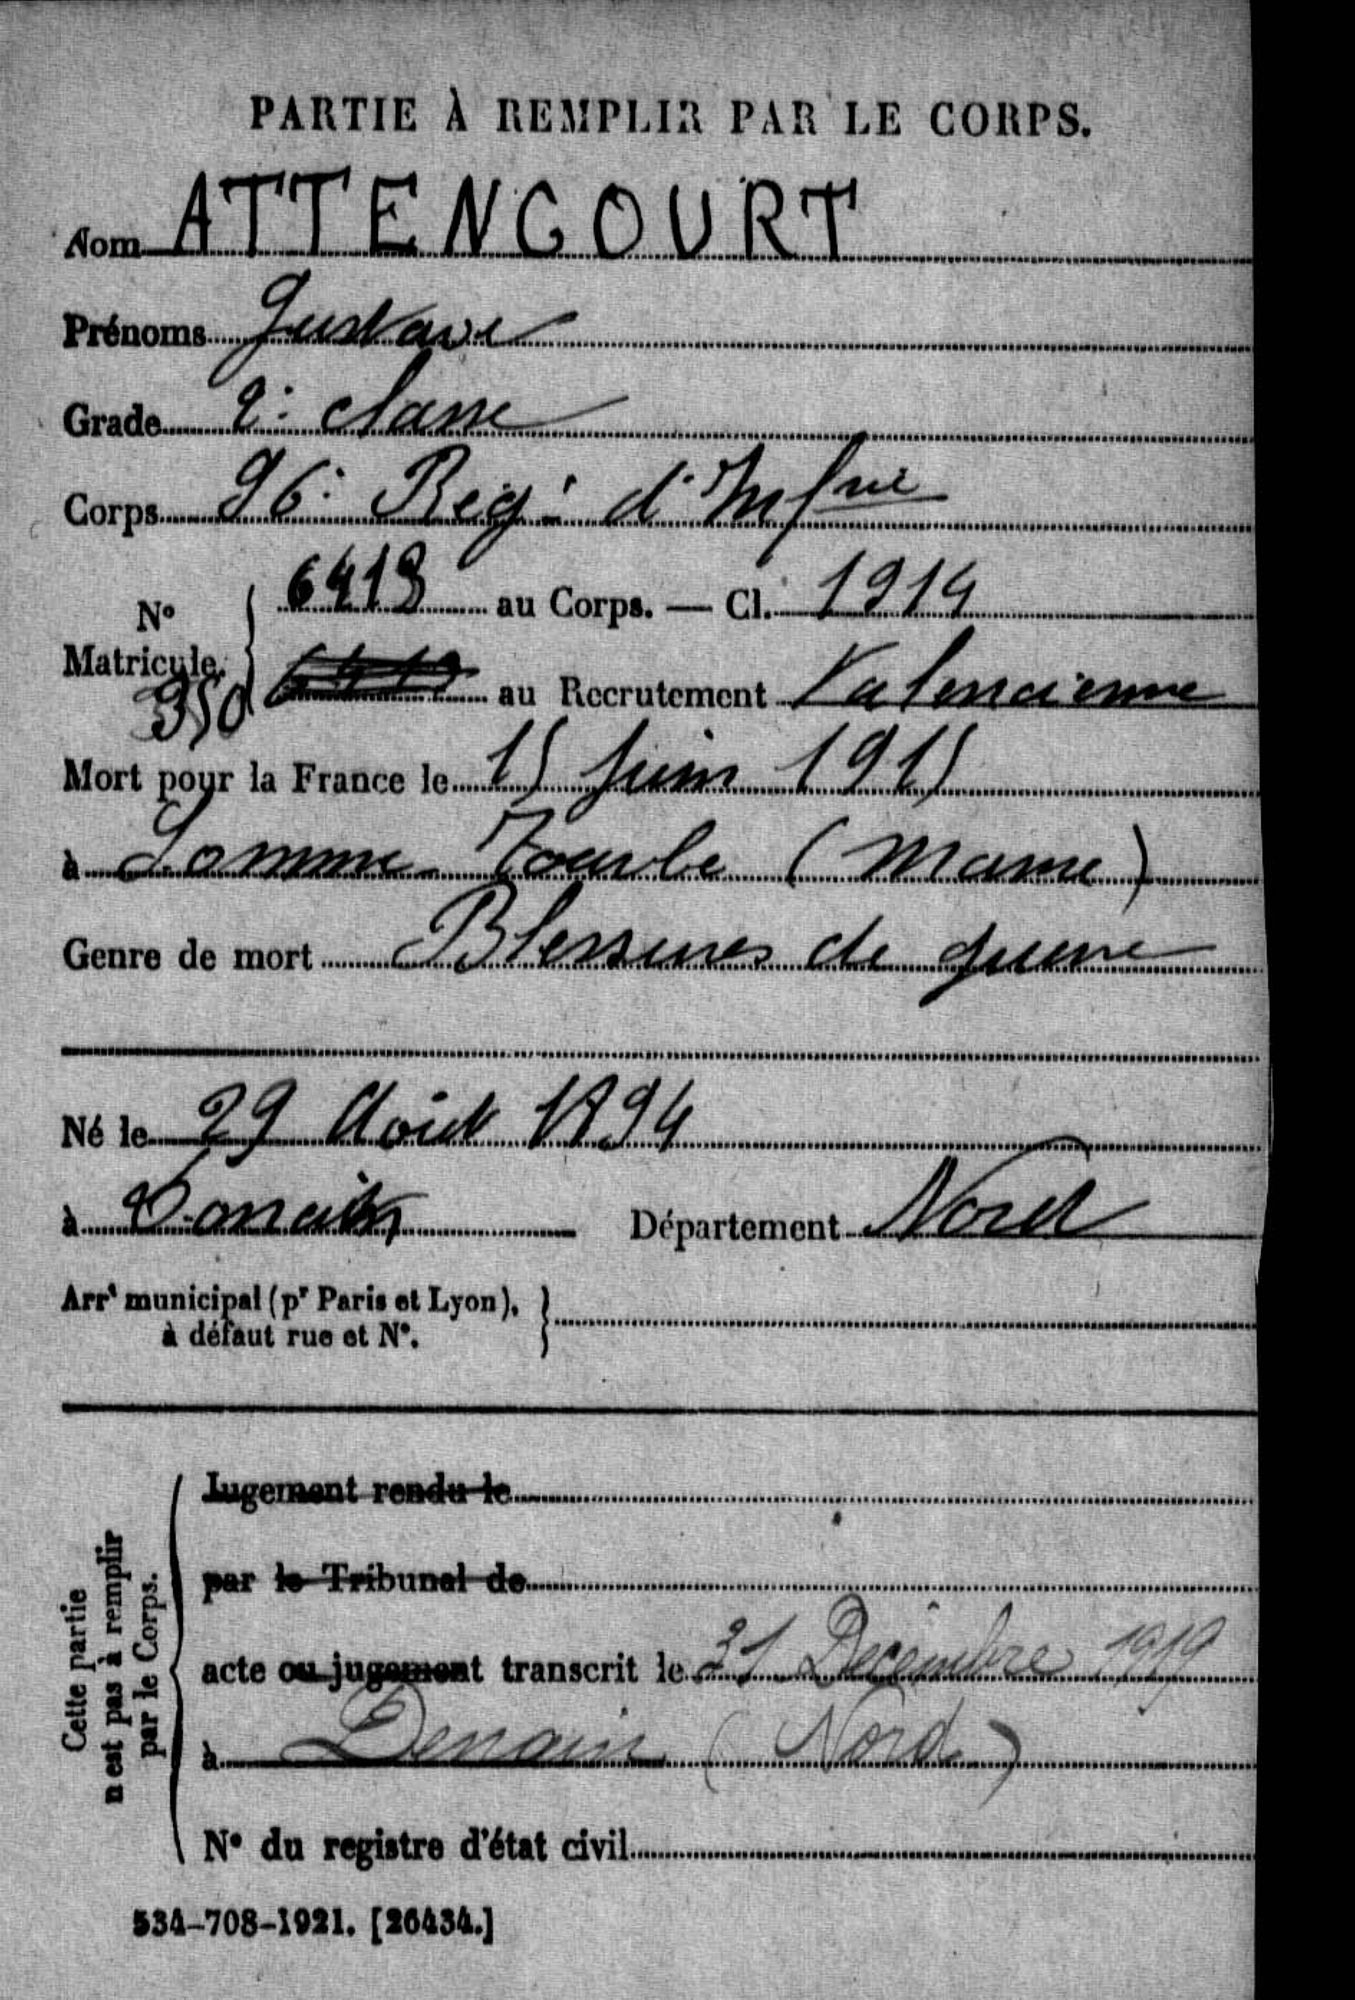 PARTIE À REMPLIR PAR LE CORPS.
Nom ATTENCOURT
Prénoms Gustave
Grade 2e classe
Corps 96e Regt d'Infrie
No Matricule. 6418 au Corps. — Cl. 1914
350 6418 au Recrutement Valencienne
Mort pour la France le 15 Juin 1915
à Somme-Tourbe (Marne)
Genre de mort Blessures de guerre
Né le 29 Août 1894
à Département Nord
Arrt municipal (pr Paris et Lyon),
à défaut rue et No.
Cette partie
n'est pas à remplir
par le Corps.
Jugement rendu le
par le Tribunal de
acte ou jugement transcrit le 31 Decembre 1919
à Denain (Nord)
No du registre d'état civil
534-708-1921. [26434.]